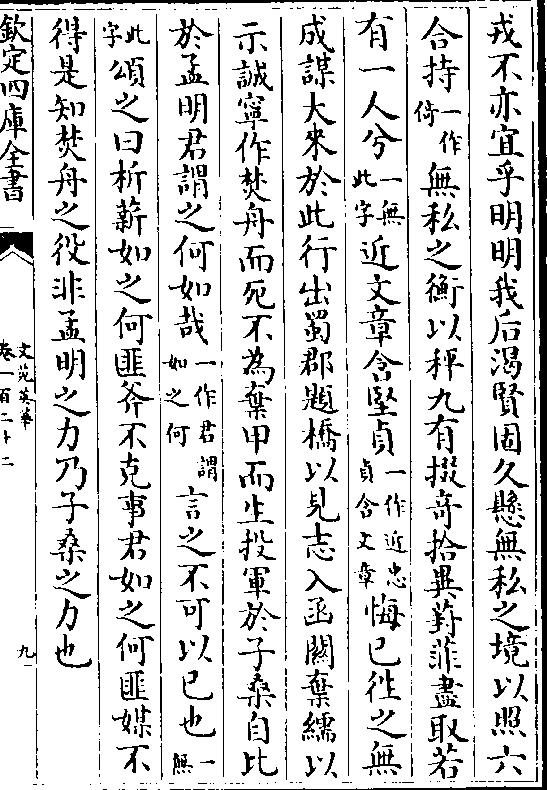 戎不亦宜乎明明我后渴賢固久懸無私之境以照六
合持一作倚無私之衡以秤九有掇奇拾異葑菲盡取若
有一人兮一無此字近文章含堅貞一作近忠貞含文章悔已徃之無
成謀大来於此行出蜀郡題橋以見志入函關棄繻以
示誠寧作焚舟而死不為棄甲而生投軍於子桑自比
於孟明君謂之何如哉一作君謂如之何言之不可以已也一無
此字頌之曰析薪如之何匪斧不克事君如之何匪媒不
得是知焚舟之役非孟明之力乃子桑之力也
欽定四庫全書
文苑英華
卷一百二十二
九